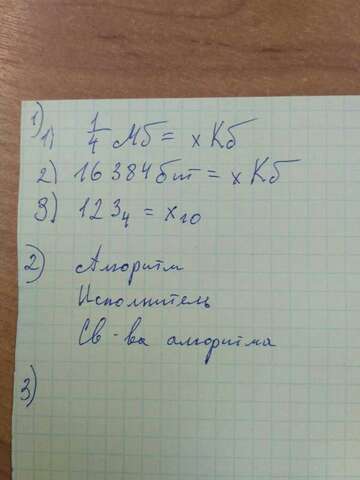 1)
1) 1/4 Мб = x Кб
2) 16384 бит = x Кб
3) 123₄ = x₁₀
2) Алгоритм
Исполнитель
Св-ва алгоритма
3)